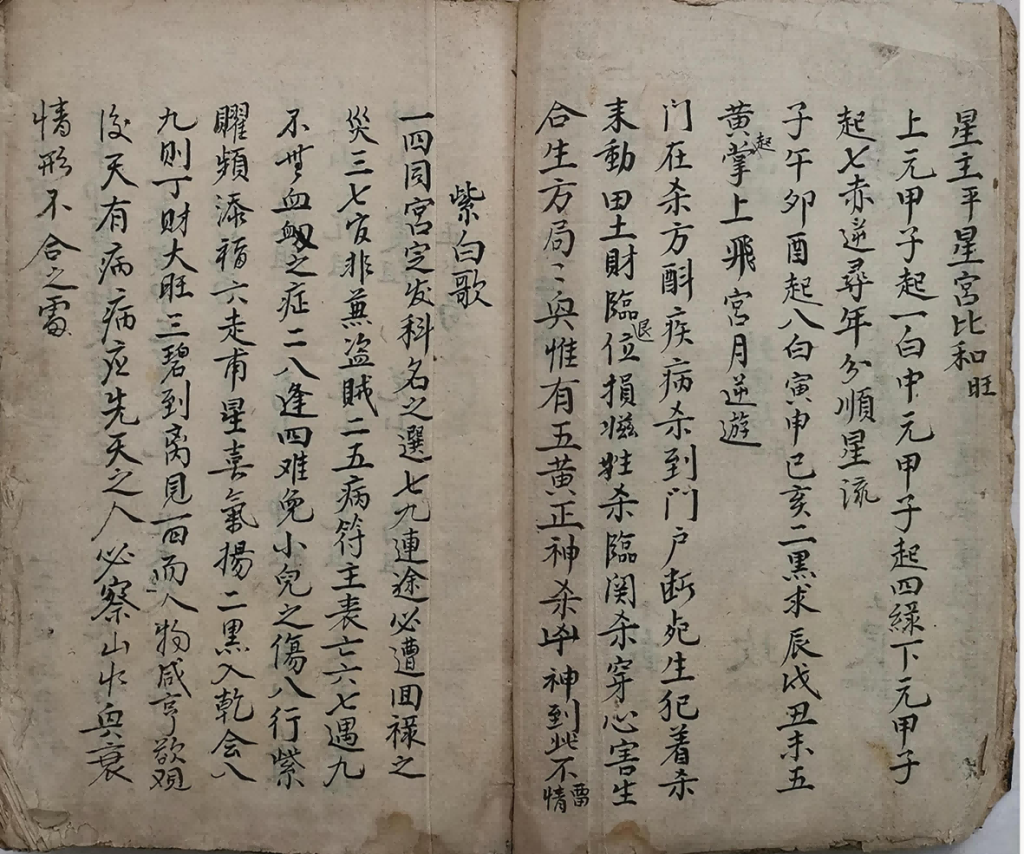 星主平星宮比和旺
上元甲子起一白中元甲子起四緑下元甲子
起七赤逆尋年分順星流
子午卯酉起八白寅申巳亥二黑求辰戌丑未五
黄起掌上飛宮月逆遊
门在杀方酙疾病杀到门户断死生犯着杀
耒動田土財臨退位損㓕牲杀臨関杀穿心害生
合生方局〻與惟有五黄正神杀凶神到此不留情
紫白歌
一四同宮定发科名之選七九連途必遭回禄之
災三七官非蒹盗賊二五病符主丧亡六七遇九
不無血之症二八逢四难免小兒之傷八行紫
曜頻添福六走甫星喜氣揚二黑入乾会八
九則丁財大旺三碧到离見一四而人物咸亨欲观
後天有病病应先天之人必察山水與衰
情形不合之處